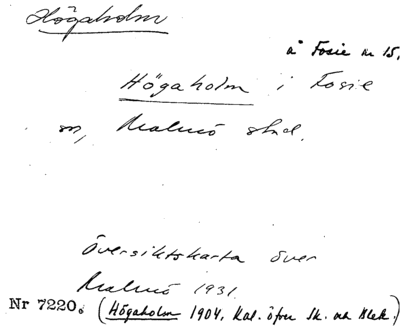 Högaholm
å Fosie nr 15.
Högaholm i Fosie
sn, Malmö stad.
Översiktskarta över
Malmö 1931.
Nr 7220. (Högaholm 1904, Kal. öfver Sk. och Blek.)